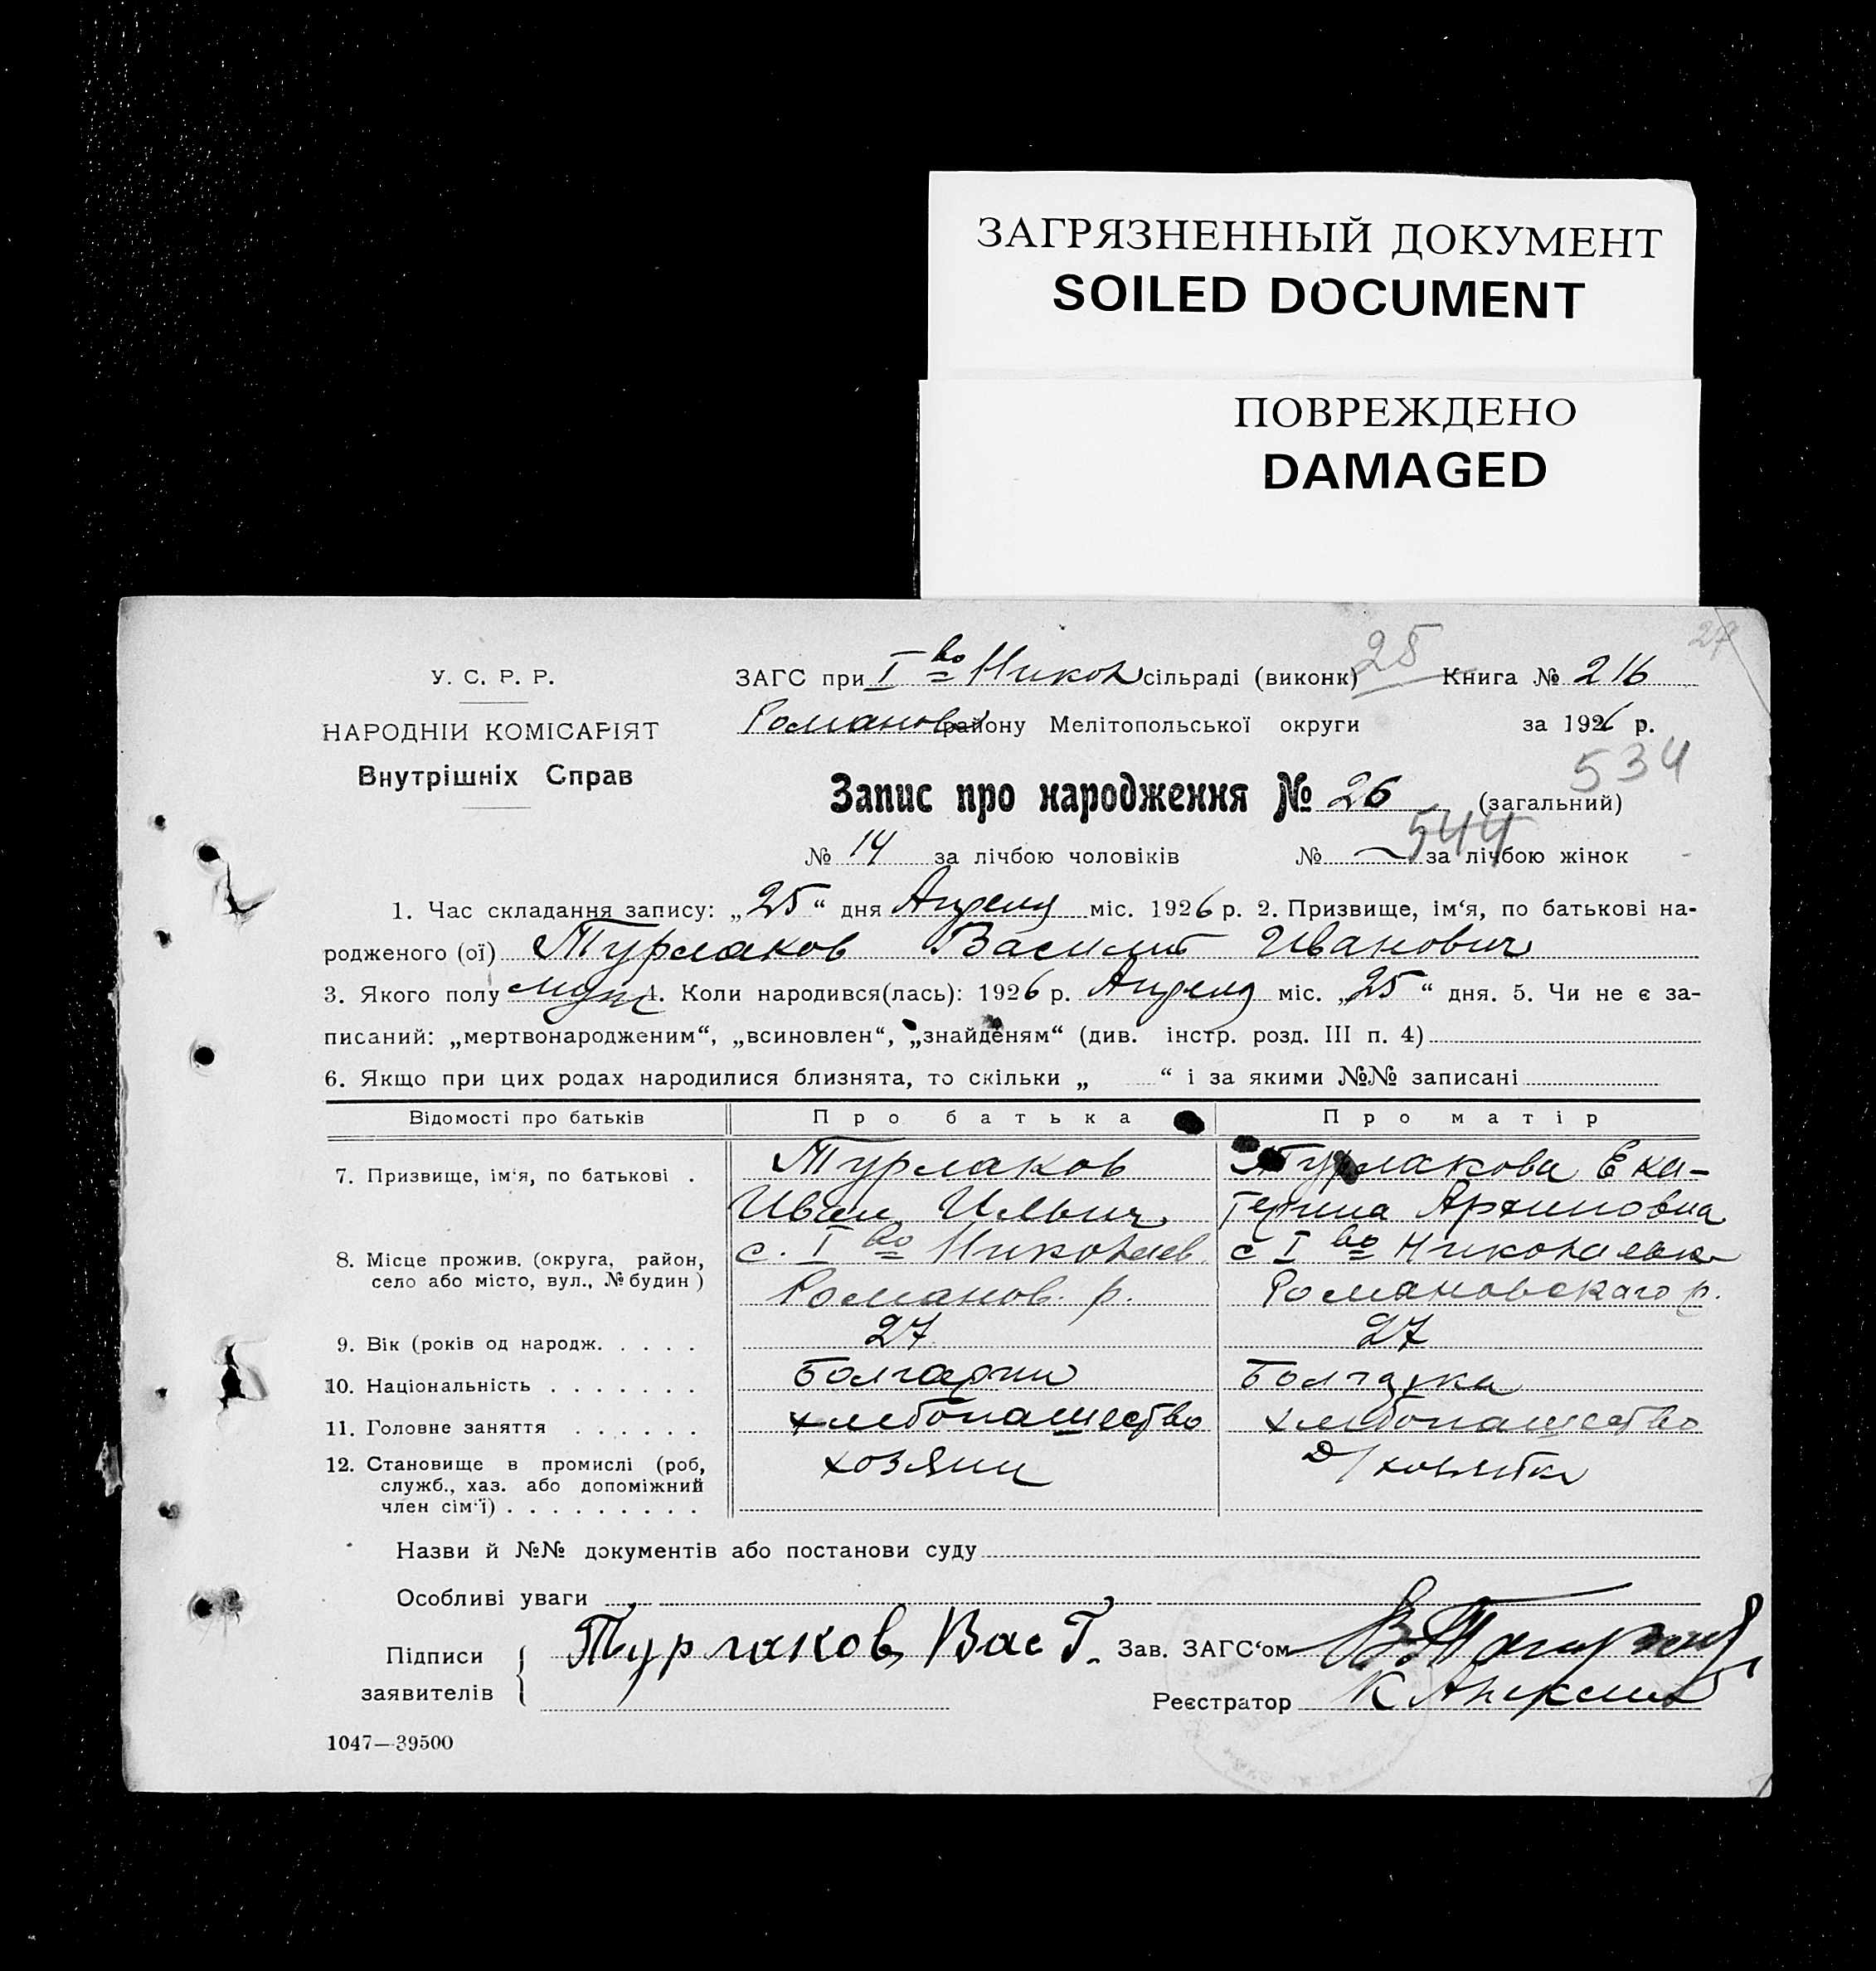 ЗАГРЯЗНЕННЫЙ ДОКУМЕНТ
SOILED DOCUMENT
ПОВРЕЖДЕНО
DAMAGED
27
У. С. Р. Р.
НАРОДНІЙ КОМІСАРІЯТ
Внутрішніх Справ
ЗАГС при I во Никол сільраді (виконк) 25 Книга № 216
Романов району Мелітопольської округи за 1926 р.
534
Запис про народження № 26 (загальний)
544
№ 14 за лічбою чоловіків № — за лічбою жінок
1. Час складання запису: „25“ дня Апреля міс. 1926 р. 2. Призвище, ім‘я, по батькові на-
родженого (ої) Турлаков Василий Иванович
3. Якого полу муж 4. Коли народився(лась): 1926 р. Апреля міс. „25“ дня. 5. Чи не є за-
писаний: „мертвонародженим“, „всиновлен“, „знайденям“ (див. інстр. розд. III п. 4)
6. Якщо при цих родах народилися близнята, то скільки „ “ і за якими №№ записані
Відомості про батьків Про батька Про матір
7. Призвище, ім‘я, по батькові . Турлаков Турлакова Ека-
Иван Ильич терина
8. Місце прожив. (округа, район, с. I во Николаев. с I во
село або місто, вул., № будин) Романов. р. Романовскаго р.
9. Вік (років од народж. . . . . 27 27
10. Національність . . . . . . . Болгарин Болгарка
11. Головне заняття . . . . . . хлебопашество хлебопашество
12. Становище в промислі (роб, хозяин д/хозяйка
служб., хаз. або допоміжний
член сім‘ї) . . . . . . . . .
Назви й №№ документів або постанови суду
Особливі уваги
Підписи Турлаков Вас Г. Зав. ЗАГС‘ом
заявителів Реєстратор К
1047—39500